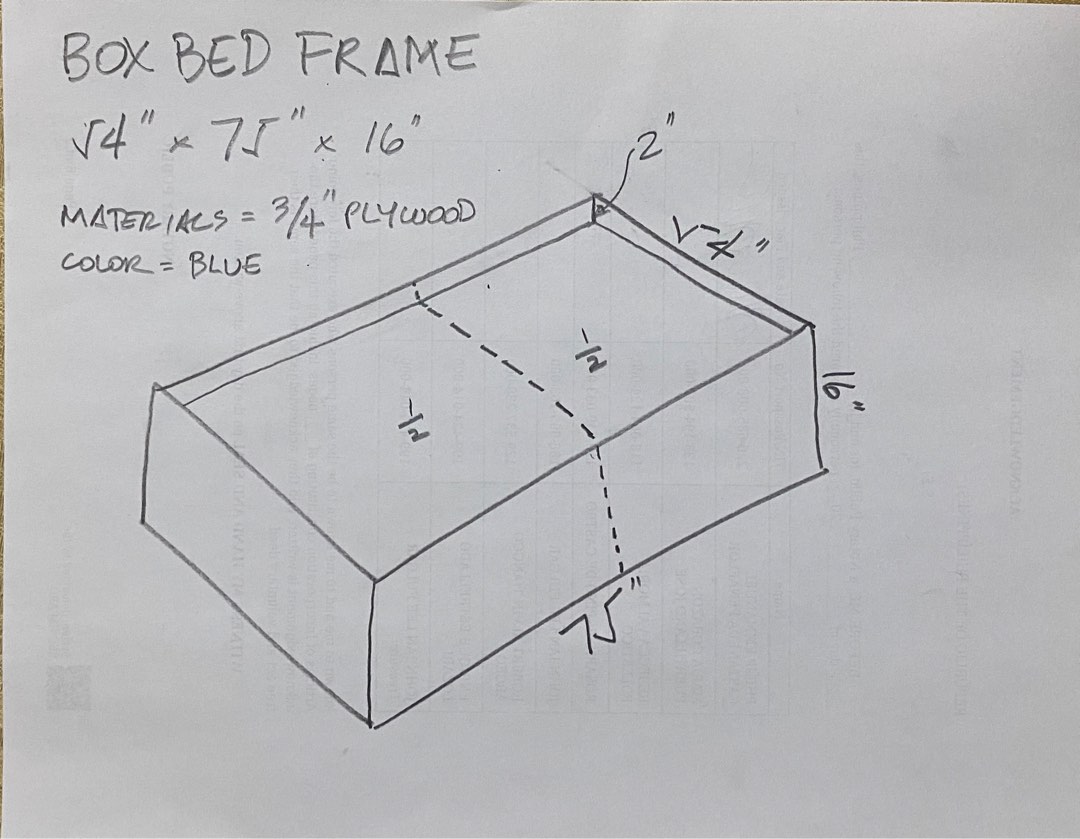 BOX BED FRAME
54" x 75" x 16"
MATERIALS = 3/4" PLYWOOD
COLOR = BLUE
2"
54"
1/2
1/2
16"
75"